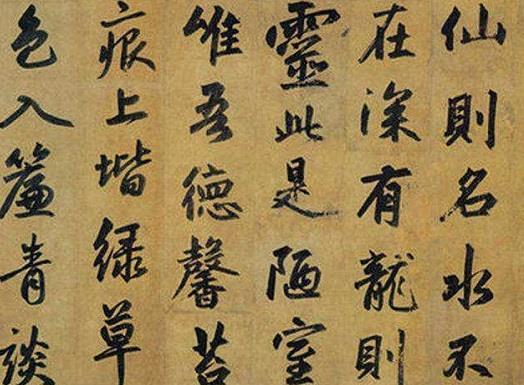 仙則名水不
在深有龍則
靈此是陋室
惟吾德馨苔
痕上堦緑草
色入簾青談